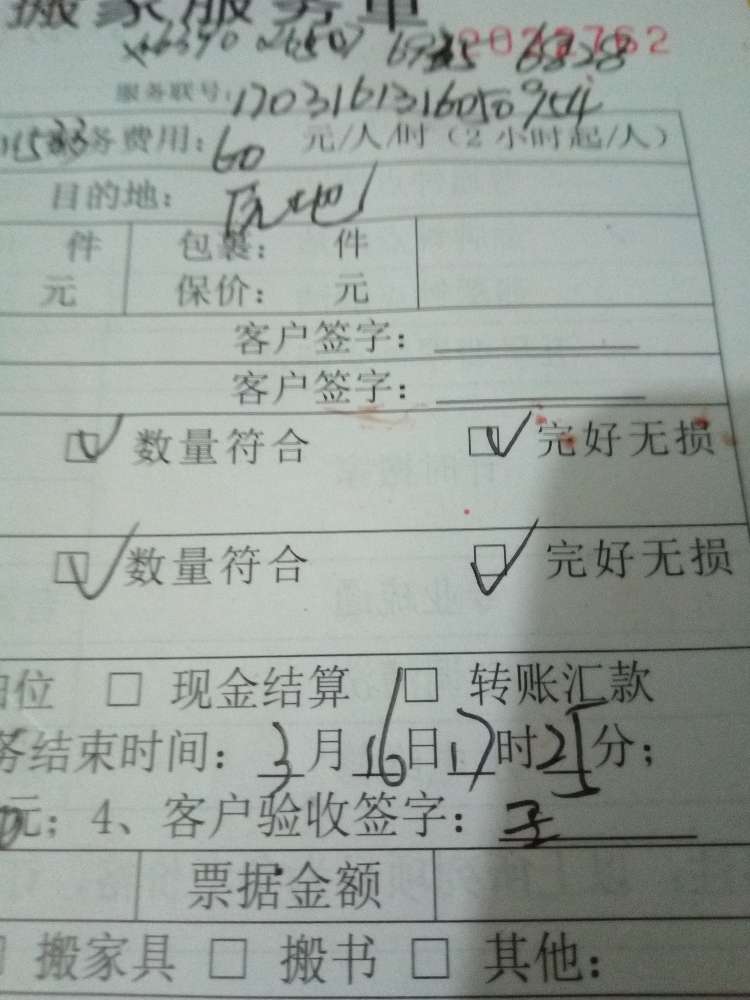 搬家服务单
服务联号: 170316131605０954
务费用: 60 元/人/时（2小时起/人）
目的地: 原地
件 包裹: 件
元 保价: 元
客户签字:
客户签字:
数量符合 完好无损
数量符合 完好无损
位 □ 现金结算 □ 转账汇款
务结束时间: 3月16日17时25分;
元; 4、客户验收签字:
票据金额
搬家具 □ 搬书 □ 其他: